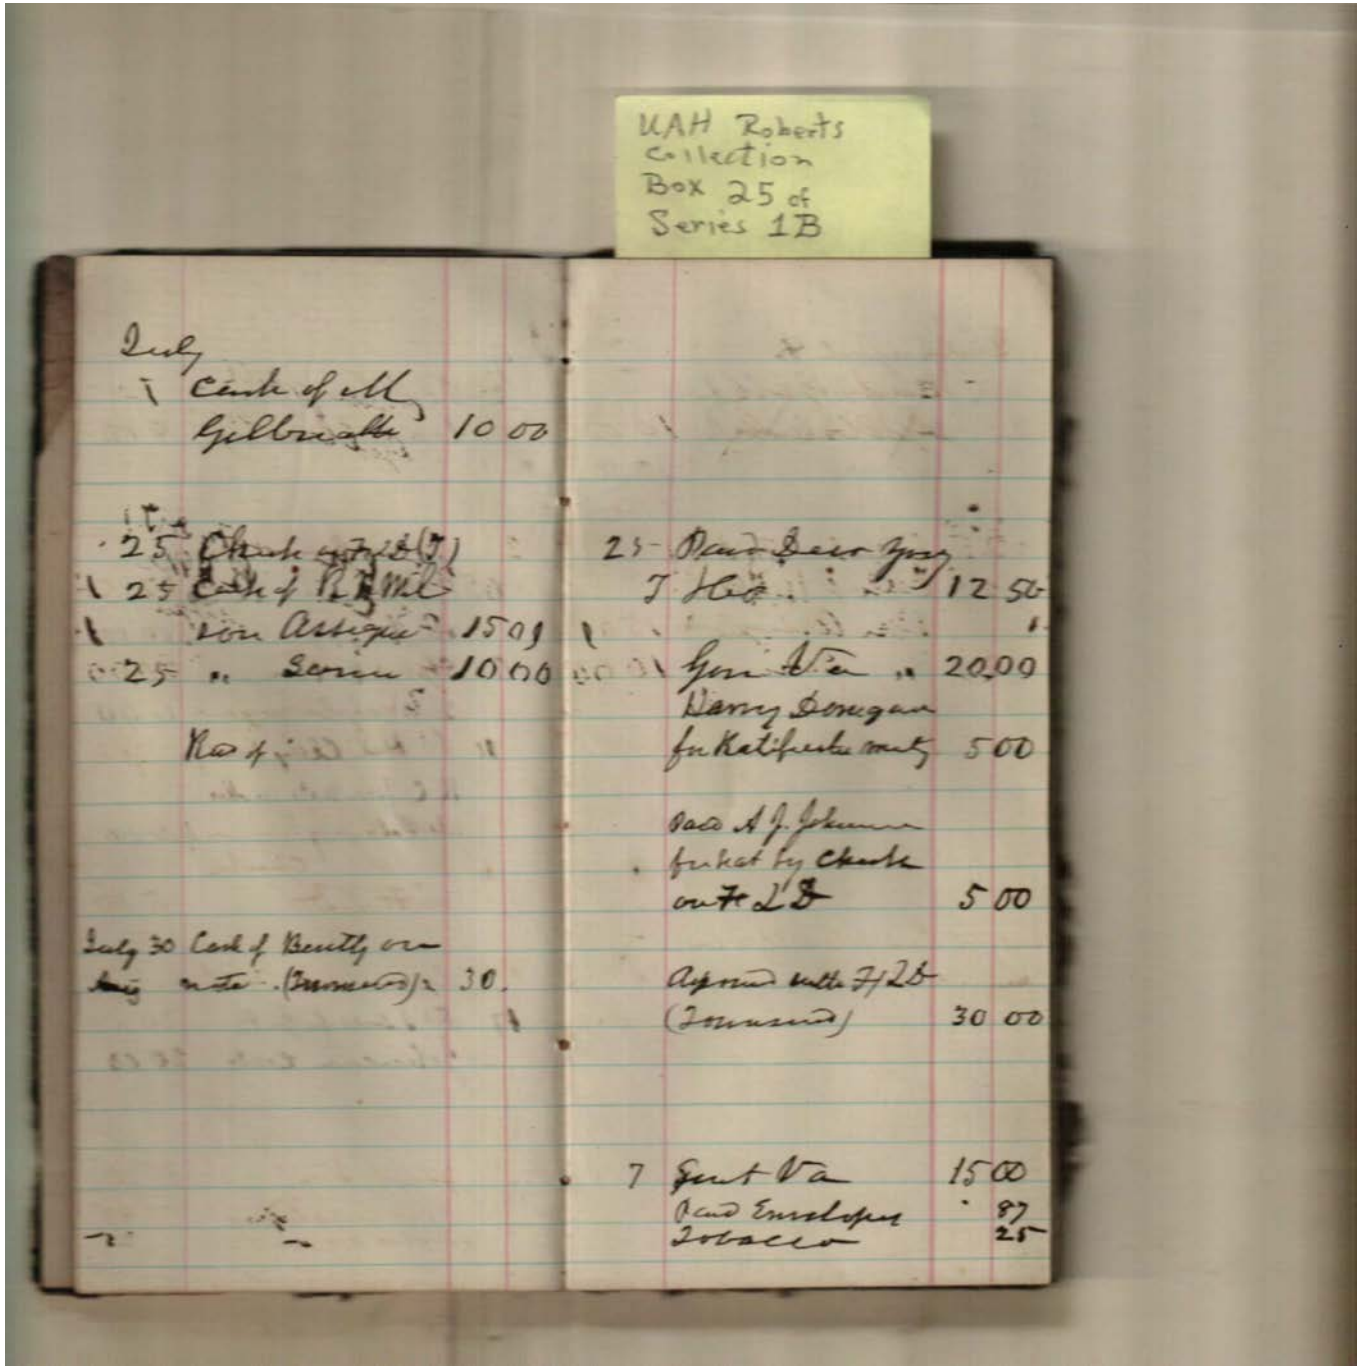 UAH Roberts
Collection
Box 25 of
Series 1B
July
1 Cash of M
Gilbreath 10 00
25 Check on F L D (T)
25 Cash of R E Wil
son Assignee 15 01
25 " Same 10 00
Rec of
July 30 Cash of Bently on
note (Townsend) 30.
25 Paid Dear
12 50
Gave Va " 20.00
Harry Donegan
for Ratification meeting 5 00
Paid A J. Johnson
for hat by Check
on F L D 5 00
Deposited with F L D
(Townsend) 30 00
7 Sent Va 15 00
Paid Envelopes 87
Tobacco 25